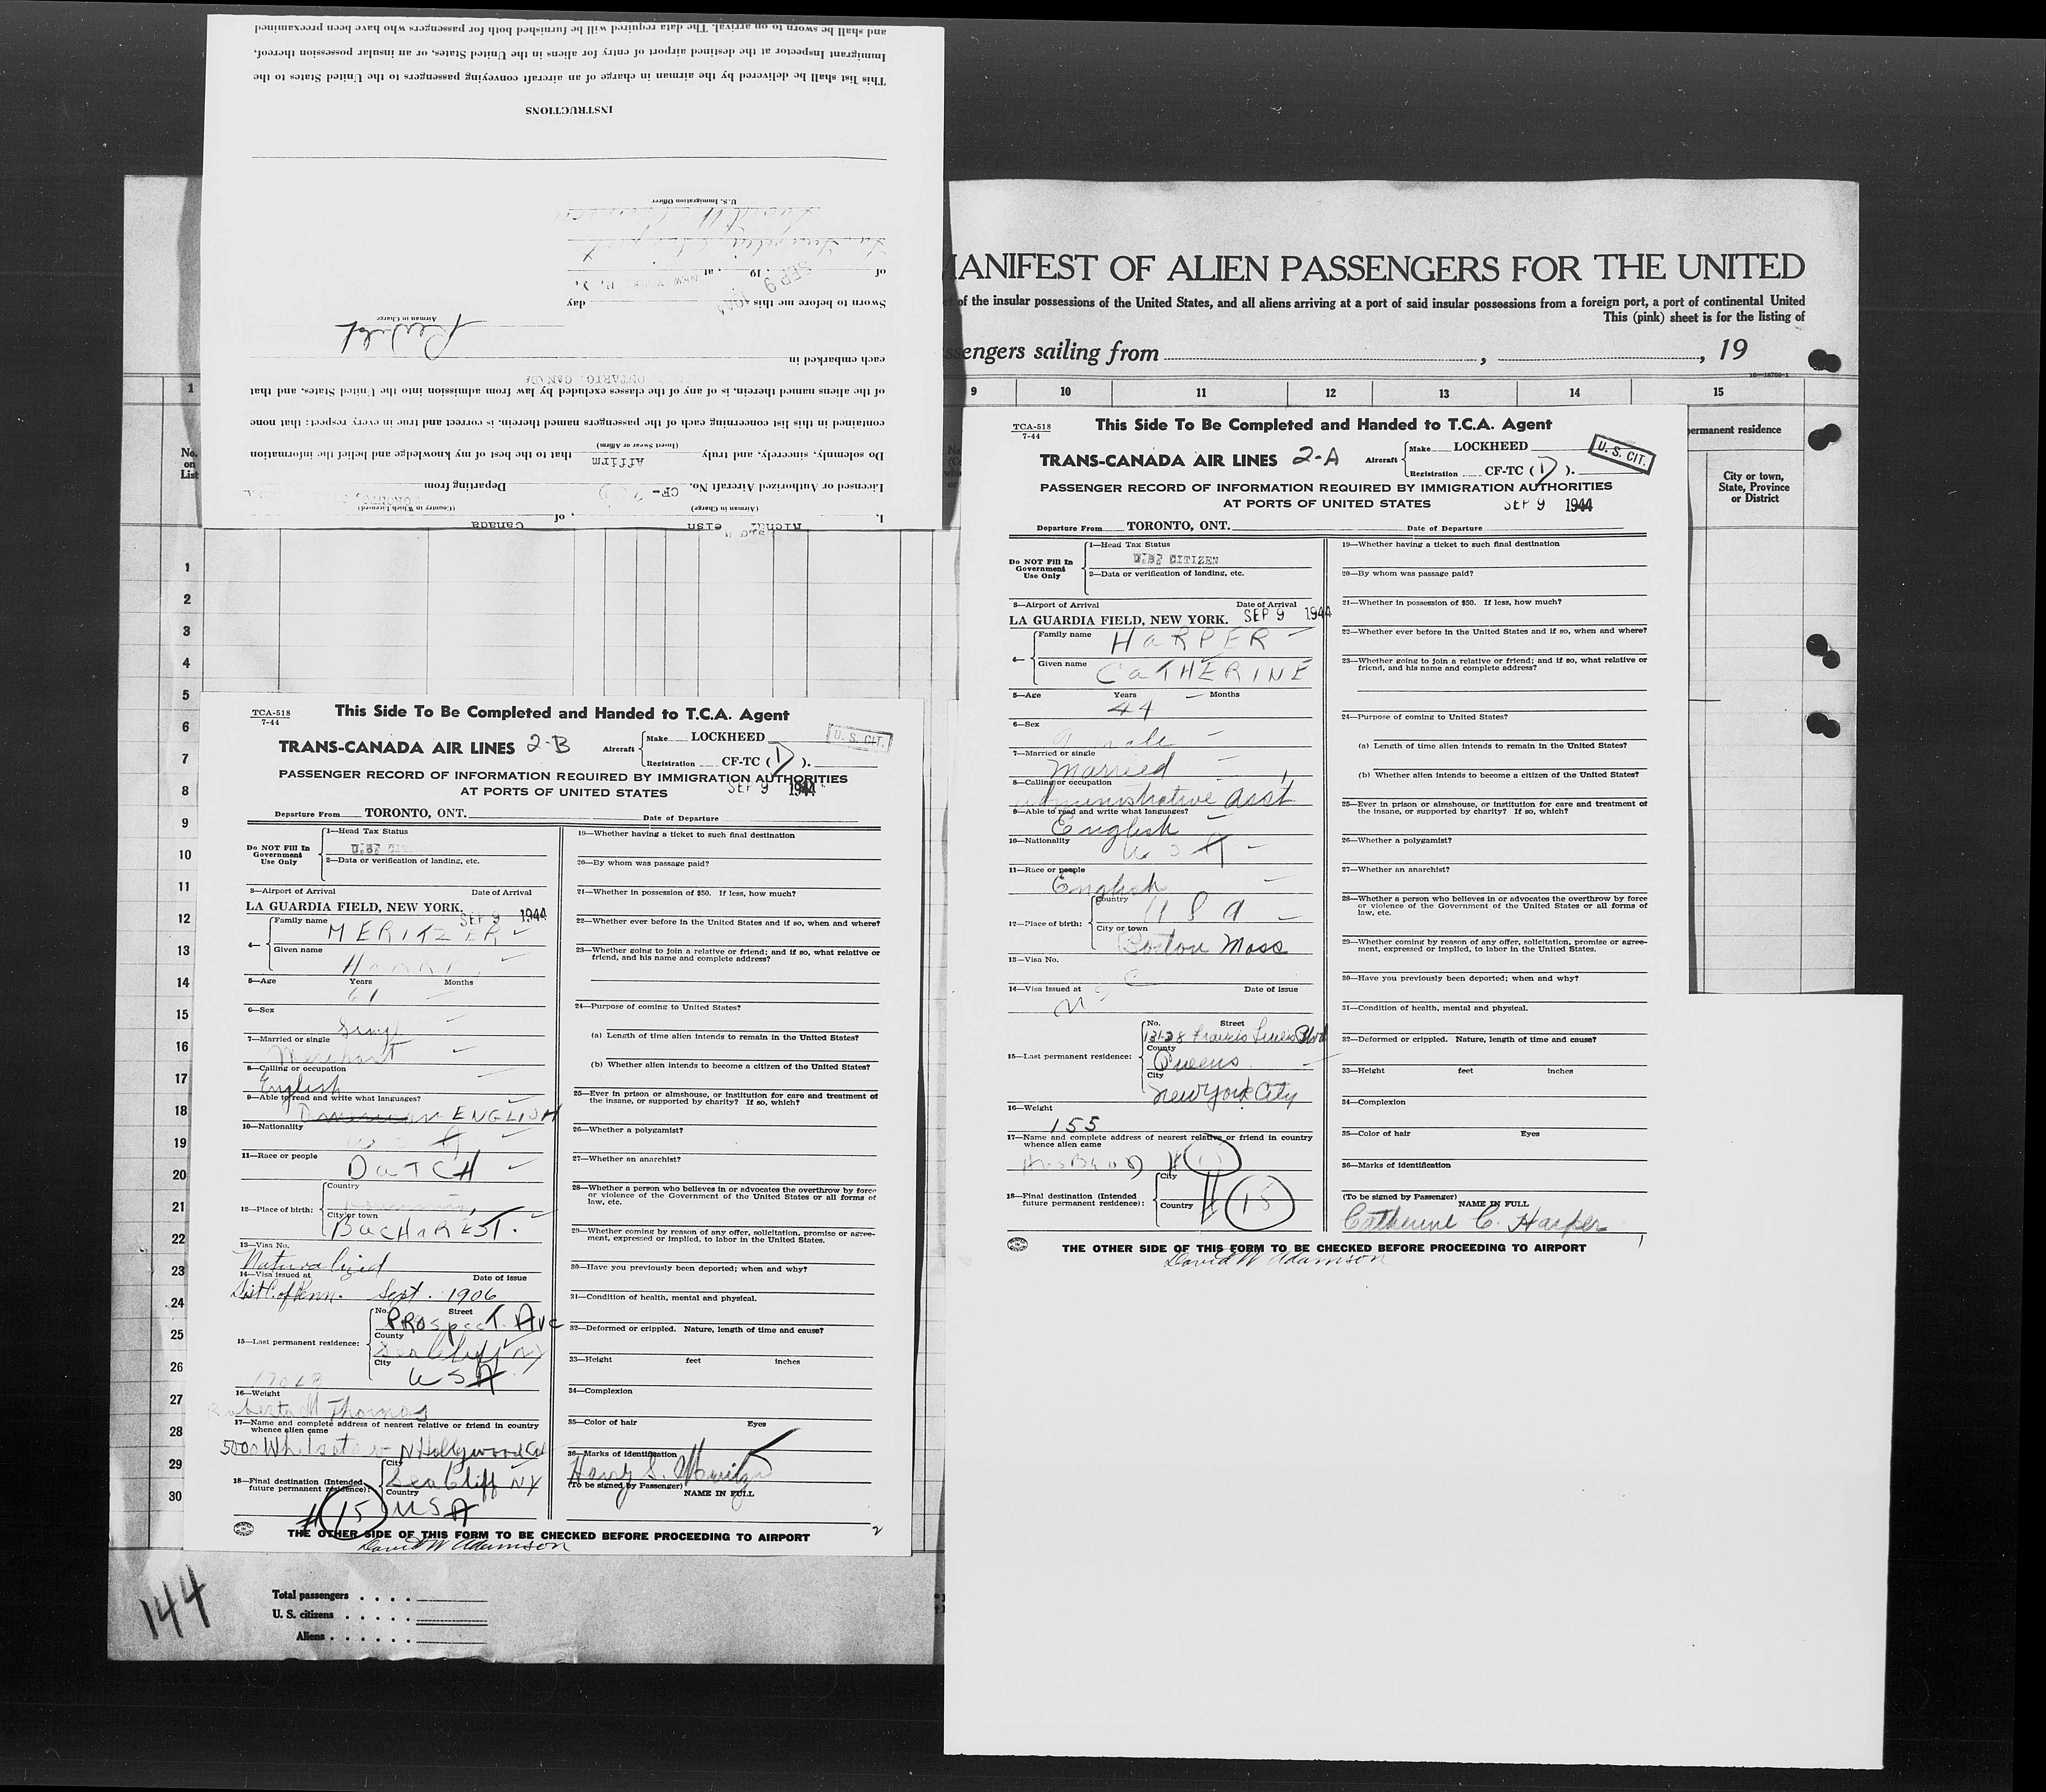 and shall be sworn to on arrival. The data required will be furnished both for passengers who have been preexamined
Immigrant Inspector at the destined airport of entry for aliens in the United States, or an insular possession thereof,
This list shall be delivered by the airman in charge of an aircraft conveying passengers to the United States to the
INSTRUCTIONS
U.S. Immigration Officer
of , 19 , at
SEP 9 1944
Sworn to before me this day
Airman in Charge
each embarked in
ONTARIO, CANADA
of the aliens named therein, is of any of the classes excluded by law from admission into the United States, and that
contained in this list concerning each of the passengers named therein, is correct and true in every respect; that none
(Insert Swear or Affirm)
Do solemnly, sincerely, and truly Affirm that to the best of my knowledge and belief the information
Licensed or Authorized Aircraft No. CF- Departing from
(Airman in Charge) (Country in Which Licensed)
I, of Canada
MANIFEST OF ALIEN PASSENGERS FOR THE UNITED
of the insular possessions of the United States, and all aliens arriving at a port of said insular possessions from a foreign port, a port of continental United
This (pink) sheet is for the listing of
ssengers sailing from , , 19
1 9 10 11 12 13 14 15
No. on List
permanent residence
City or town, State, Province or District
1
2
3
4
5
6
7
8
9
10
11
12
13
14
15
16
17
18
19
20
21
22
23
24
25
26
27
28
29
30
TCA-518
7-44
This Side To Be Completed and Handed to T.C.A. Agent
TRANS-CANADA AIR LINES 2-B
Aircraft Make LOCKHEED
Registration CF-TC ( D ).
U. S. CIT.
PASSENGER RECORD OF INFORMATION REQUIRED BY IMMIGRATION AUTHORITIES
AT PORTS OF UNITED STATES SEP 9 1944
Departure From TORONTO, ONT. Date of Departure
Do NOT Fill In Government Use Only
1—Head Tax Status
2—Data or verification of landing, etc.
3—Airport of Arrival Date of Arrival
LA GUARDIA FIELD, NEW YORK. SEP 9 1944
4— Family name MERITZER
Given name
5—Age Years Months
61
6—Sex
7—Married or single
Merchant
8—Calling or occupation
English
9—Able to read and write what languages?
ENGLISH
10—Nationality
U S A
11—Race or people
DUTCH
12—Place of birth: Country
City or town
BUCHAREST.
13—Visa No.
Naturalized
14—Visa issued at Date of issue
Sept. 1906
15—Last permanent residence: No. Street
PROSpecT. AVe
County
Sea Cliff NY
City
USA
16—Weight
Roberta M. Thomas
17—Name and complete address of nearest relative or friend in country whence alien came
N Hollywood Cal
18—Final destination (Intended future permanent residence):
City
Sea Cliff NY
Country
USA
# 15
19—Whether having a ticket to such final destination
20—By whom was passage paid?
21—Whether in possession of $50. If less, how much?
22—Whether ever before in the United States and if so, when and where?
23—Whether going to join a relative or friend; and if so, what relative or friend, and his name and complete address?
24—Purpose of coming to United States?
(a) Length of time alien intends to remain in the United States?
(b) Whether alien intends to become a citizen of the United States?
25—Ever in prison or almshouse, or institution for care and treatment of the insane, or supported by charity? If so, which?
26—Whether a polygamist?
27—Whether an anarchist?
28—Whether a person who believes in or advocates the overthrow by force or violence of the Government of the United States or all forms of law, etc.
29—Whether coming by reason of any offer, solicitation, promise or agreement, expressed or implied, to labor in the United States.
30—Have you previously been deported; when and why?
31—Condition of health, mental and physical.
32—Deformed or crippled. Nature, length of time and cause?
33—Height feet inches
34—Complexion
35—Color of hair Eyes
36—Marks of identification
(To be signed by Passenger) NAME IN FULL
THE OTHER SIDE OF THIS FORM TO BE CHECKED BEFORE PROCEEDING TO AIRPORT
David W Adamson
2
144
Total passengers
U. S. citizens
Aliens
TCA-518
7-44
This Side To Be Completed and Handed to T.C.A. Agent
TRANS-CANADA AIR LINES 2-A
Aircraft Make LOCKHEED
Registration CF-TC ( D ).
U. S. CIT.
PASSENGER RECORD OF INFORMATION REQUIRED BY IMMIGRATION AUTHORITIES
AT PORTS OF UNITED STATES SEP 9 1944
Departure From TORONTO, ONT. Date of Departure
Do NOT Fill In Government Use Only
1—Head Tax Status
CITIZEN
2—Data or verification of landing, etc.
3—Airport of Arrival Date of Arrival
LA GUARDIA FIELD, NEW YORK. SEP 9 1944
4— Family name HARPER
Given name CATHERINE
5—Age Years Months
44
6—Sex
7—Married or single
Married
8—Calling or occupation
Administrative Asst
9—Able to read and write what languages?
English
10—Nationality
U S A
11—Race or people
English
12—Place of birth: Country
U S A
City or town
Boston Mass
13—Visa No.
14—Visa issued at Date of issue
15—Last permanent residence: No. Street
131-28 Francis Lewis Blvd
County
Queens
City
New York City
16—Weight
155
17—Name and complete address of nearest relative or friend in country whence alien came
HUSBAND
18—Final destination (Intended future permanent residence):
City
Country
# 15
19—Whether having a ticket to such final destination
20—By whom was passage paid?
21—Whether in possession of $50. If less, how much?
22—Whether ever before in the United States and if so, when and where?
23—Whether going to join a relative or friend; and if so, what relative or friend, and his name and complete address?
24—Purpose of coming to United States?
(a) Length of time alien intends to remain in the United States?
(b) Whether alien intends to become a citizen of the United States?
25—Ever in prison or almshouse, or institution for care and treatment of the insane, or supported by charity? If so, which?
26—Whether a polygamist?
27—Whether an anarchist?
28—Whether a person who believes in or advocates the overthrow by force or violence of the Government of the United States or all forms of law, etc.
29—Whether coming by reason of any offer, solicitation, promise or agreement, expressed or implied, to labor in the United States.
30—Have you previously been deported; when and why?
31—Condition of health, mental and physical.
32—Deformed or crippled. Nature, length of time and cause?
33—Height feet inches
34—Complexion
35—Color of hair Eyes
36—Marks of identification
(To be signed by Passenger) NAME IN FULL
Catherine C. Harper
THE OTHER SIDE OF THIS FORM TO BE CHECKED BEFORE PROCEEDING TO AIRPORT
David W Adamson
1